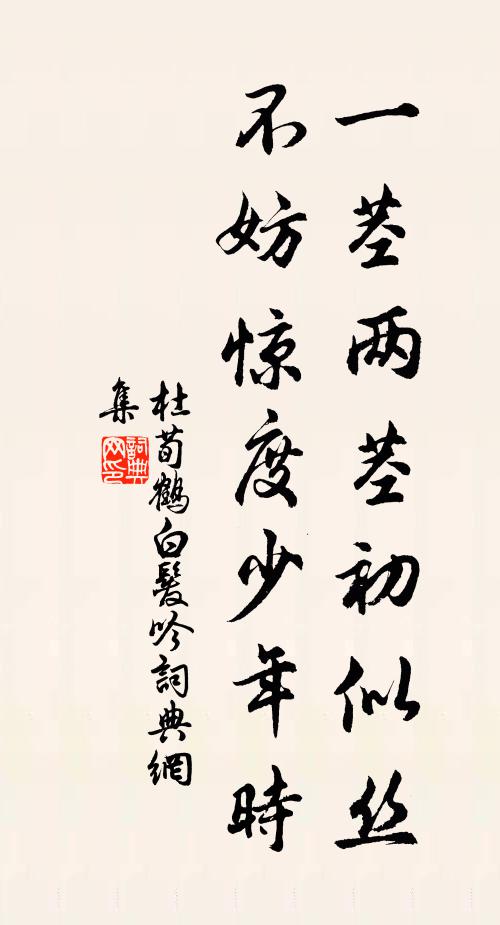 一茎两茎初似丝
不妨惊度少年時
杜荀鶴白髮吟詞典網
集
詞典网印